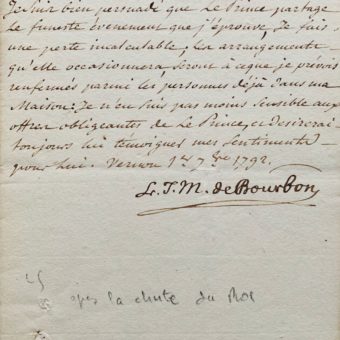 Je suis bien persuadé que Le Prince partage
le funeste évenement que j'éprouve, Je fais
une perte incalculable; les arrangements
qu'elle occasionnera, seront à ce que je prévois
renfermés parmi les personnes déjà dans ma
Maison: Je n'en suis pas moins sensible aux
offres obligeantes de Le Prince, et desirerai
toujours lui témoigner mes sentiments
pour lui. Vernon 1er 7bre 1792.
L. J. M. de Bourbon
après la chute du Roi